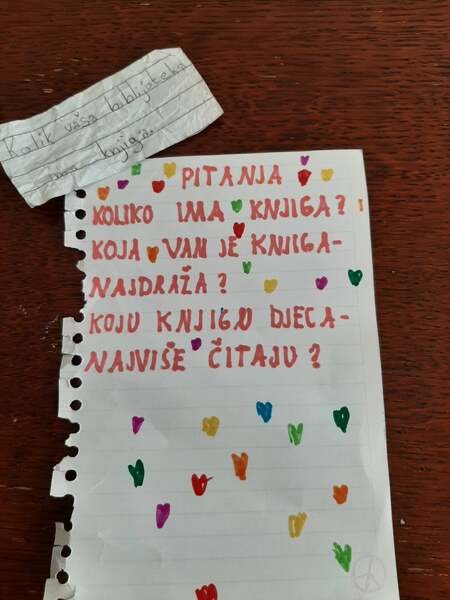 Kolik vaša biblijoteka
ima knjiga.
PITANJA
KOLIKO IMA KNJIGA?
KOJA VAN JE KNJIGA-
NAJDRAŽA?
KOJU KNJIGU DJECA-
NAJVIŠE ČITAJU?